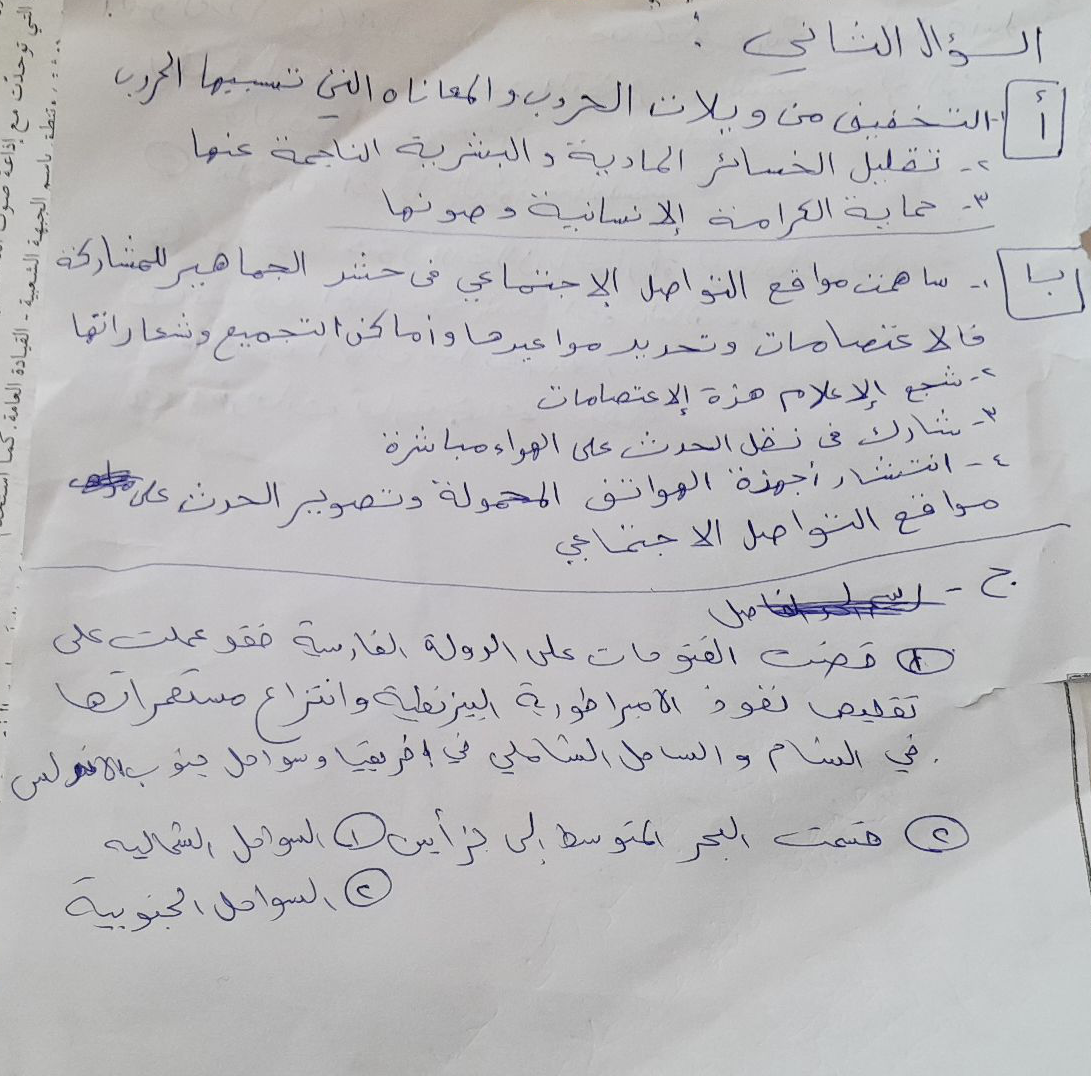 السؤال الثاني :
أ
١- التخفيف من ويلات الحروب والمعاناه التي تسببها الحروب
٢- تقليل الخسائر المادية والبشرية الناجمة عنها
٣- حماية الكرامة الإنسانية وصونها
ب
١- ساهمت مواقع التواصل الإجتماعي فى حشد الجماهير للمشاركة
فالاعتصامات وتحديد مواعيدها وأماكن التجميع وشعاراتها
٢- شجع الإعلام هذة الإعتصامات
٣- شارك فى نقل الحدث على الهواء مباشرة
٤- انتشار أجهزة الهواتف المحمولة وتصوير الحدث على
مواقع التواصل الاجتماعي
ج -
١ قضت الفتوحات على الدولة الفارسة فقد عملت على
تقليص نفوذ الامبراطورية البيزنطية وانتزاع مستعمراتها
في الشام والساحل الشمالي في افريقيا وسواحل جنوب الاندلس.
٢ قسمت البحر المتوسط إلى جزأين ١ السواحل الشماليه
٢ السواحل الجنوبية
التي توحدت مع إذاعة صوت
باسم الجبهة الشعبية - القيادة العامة. كما